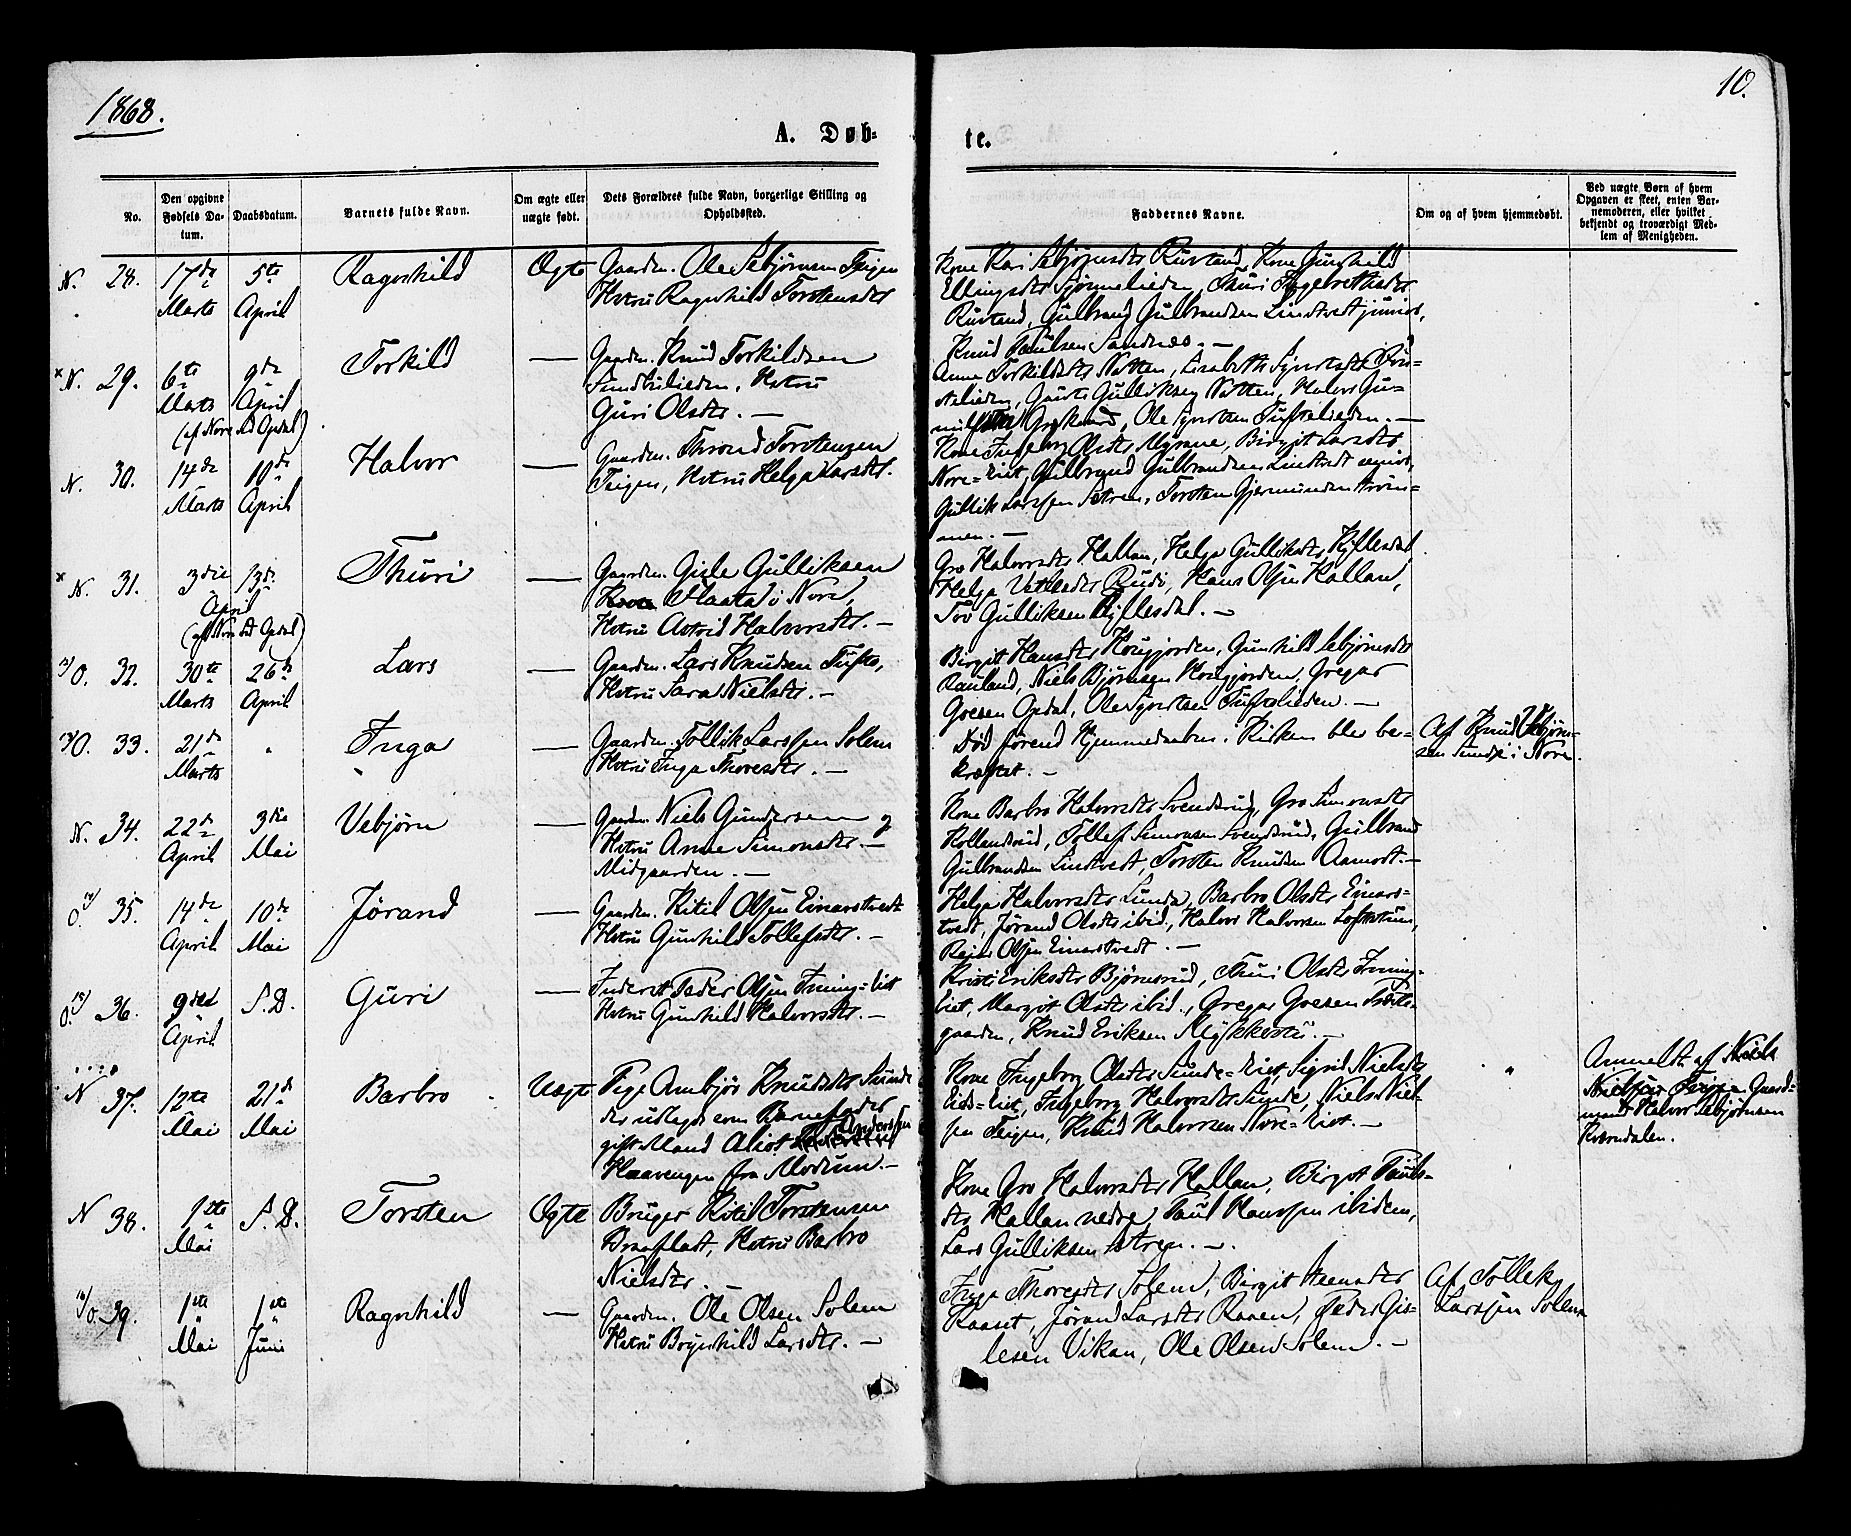 1868.
10.
A. Døb-
te.
No.
Den opgivne Fødsels Da-tum.
Daabsdatum.
Barnets fulde Navn.
Om ægte eller uægte født.
Dets Forældres fulde Navn, borgerlige Stilling og Opholdssted.
Faddernes Navne.
Om og af hvem hjemmedøbt.
Ved uægte Børn af hvem Opgaven er skeet, enten Bar-nemoderen, eller hvilket bekjendt og troværdigt Med-lem af Menigheden.
N. 28. 17de Marts 5te April Ragnhild Ægte
Gaardm. Ole Sebjørnsen Teigen
Hstru Ragnhild Torstensdtr
Kone Kari Sebjørnsdtr Rustand, Kone Gunhild
Ellingsdtr Sjønnelieden, Thuri Ingebrethsdtr
Rustand, Gulbrand Gulbrandsen Lindtvedt junior,
Knud Paulsen Sandnes. —
x N. 29. 6te Marts 9de April Torkild —
(af Nore ved Opdal)
Gaardm. Knud Torkildsen
Sundbølieden, Hstru
Guri Olsdtr. —
Anne Torkildsdtr Natten, Lisabeth Synstedtr
Gulliksen Natten, Halvor Gu-
Ole Synsteen Tuftelieden. —
N. 30. 14de Marts 10de April Halvor —
Gaardm. Thrond Torstensen
Teigen, Hstru Helga Larsdtr.
Kone Ingeborg Olsdtr Myrane, Birgit Larsdtr
Nore=Eiet, Gulbrand Gulbrandsen Lindtvedt senior,
Gullik Larssen Sætren, Torsten Gjermundsen Strøm-
men. —
x N. 31. 3die April 13de Thuri —
(af Nore ved Opdal)
Gaardm. Gisle Gulliksen
Flaata i Nore,
Hstru Astrid Halvorsdtr. —
Gro Halvorsdtr Hallan, Helga Gulliksdtr Kjillesdal
Helga Vetlesdtr Rudi, Hans Olsen Hallan,
Tov Gulliksen Kjillesdal. —
O. 32. 30te Marts 26de April Lars —
Gaardm. Lars Knudsen Tufte,
Hstru Sara Nielsdtr. —
Birgit Hansdtr Hougjorden, Gunhild Sebjørnsdtr
Rauland, Niels Bjørnsen Hougjorden, Gregar
Goesen Opdal, Ole Synsteen Tuftelieden. —
O. 33. 21de Marts " Inga —
Gaardm. Tollik Larssen Solem
Hstru Inga Thoresdtr. —
Død førend Hjemmedaaben i Kirken blev be-
kræftet. —
Af Knud Vebjørn-
sen Sundje i Nore.
N. 34. 22de April 3die Mai Vebjørn —
Gaardm. Niels Gundersen og
Hstru Anne Simonsdtr. —
Midgaarden. —
Kone Barbro Halvorsdtr Svendsrud, Gro Simonsdtr
Kollandsrud, Tollef Simonsen Svendsrud, Gulbrand
Gulbrandsen Lindtvedt, Torsten Knudsen Aamodt. —
O. 35. 14de April 10de Mai Jørand —
Gaardm. Kitil Olsen Einarstvedt
Hstru Gunhild Tollefsdtr. —
Helga Halvorsdtr Lunde, Barbro Olsdtr Einars-
tvedt, Jørand Olsdtr ibid., Halvor Halvorsen Loftsstuen,
Reier Olsen Einarstvedt. —
O. 36. 9de April S. D. Guri —
Inderst Peder Olsen Inning=Eiet
Hstru Gunhild Halvorsdtr. —
Kristi Eriksdtr Bjørnerud, Thuri Olsdtr Inning-
Eiet, Margit Olsdtr ibid., Gregar Goesen
gaarden, Knud Eriksen Mykkestu. —
N 37. 12te Mai 21de Mai Barbro Uægte
Pige Ambjør Knudsdtr Sunde
der udlagde som Barnefader
gift Mand Anderssen
Haavengen fra Modum. —
Kone Ingeborg Olsdtr Sunde=Eiet, Sigrid Nielsdtr
Eids=Eiet, Ingeborg Halvorsdtr Sunde, Niels Niel-
sen Teigen, Knud Halvorsen Nore=Eiet. —
"
Anmeldt af
Gaard-
mand Halvor Sebjørnsen
Kværndalen.
N 38. 1ste Mai S. D. Torsten Ægte
Bruger Kitil Torstensen
Braafladt, Hstru Barbro
Nielsdtr.
Kone Gro Halvorsdtr Hallan, Birgit Pauls-
dtr Hallan nedre, Paul Hanssen ibidem,
Lars Gulliksen Sætren. —
O. 39. 1ste Mai 1ste Juni Ragnhild —
Gaardm. Ole Olsen Solem
Hstru Brynhild Larsdtr. —
Inga Thoresdtr Solem, Birgit Steensdtr
Kaaset, Jørand Larsdtr Raaen, Peder Gis-
lesen Vikan, Ole Olsen Solem. —
Af Tollek
Larssen Solem